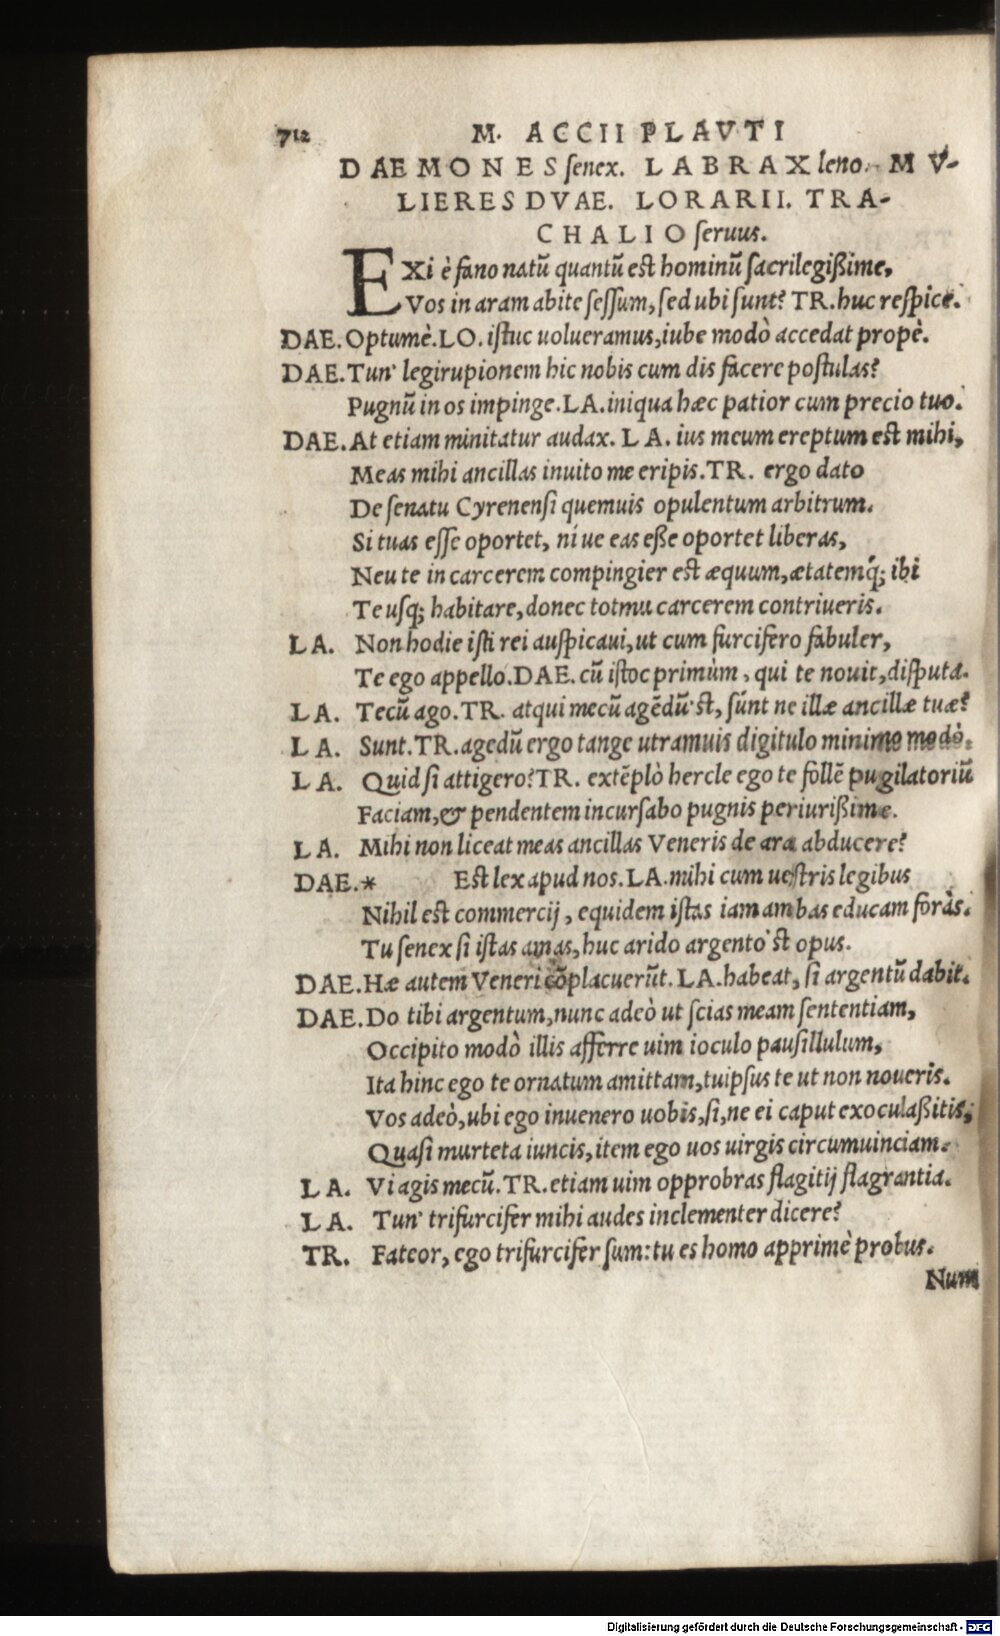 712 M. ACCII PLAVTI
DAEMONES senex. LABRAX leno. MV-
LIERES DVAE. LORARII. TRA-
CHALIO seruus.
EXi è fano natũ quantũ est hominũ sacrilegißime,
Vos in aram abite sessum, sed ubi sunt? TR. huc respice.
DAE. Optumè. LO. istuc uolueramus, iube modò accedat propè.
DAE. Tun' legirupionem hic nobis cum dis facere postulas?
Pugnũ in os impinge. LA. iniqua hæc patior cum precio tuo.
DAE. At etiam minitatur audax. LA. ius meum ereptum est mihi,
Meas mihi ancillas inuito me eripis. TR. ergo dato
De senatu Cyrenensi quemuis opulentum arbitrum.
Si tuas esse oportet, ni ue eas eße oportet liberas,
Neu te in carcerem compingier est æquum, ætatemq́; ibi
Te usq; habitare, donec totmu carcerem contriueris.
LA. Non hodie isti rei auspicaui, ut cum furcifero fabuler,
Te ego appello. DAE. cũ istoc primùm, qui te nouit, disputa.
LA. Tecũ ago. TR. atqui mecũ agẽdũ'st, súnt ne illæ ancillæ tuæ?
LA. Sunt. TR. agedũ ergo tange utramuis digitulo minimo modò.
LA. Quid si attigero? TR. extẽplò hercle ego te follẽ pugilatoriũ
Faciam, & pendentem incursabo pugnis periurißime.
LA. Mihi non liceat meas ancillas Veneris de ara abducere?
DAE. * Est lex apud nos. LA. mihi cum uestris legibus
Nihil est commercij, equidem istas iam ambas educam foràs.
Tu senex si istas amas, huc arido argento'st opus.
DAE. Hæ autem Veneri cõplacuerũt. LA. habeat, si argentũ dabit.
DAE. Do tibi argentum, nunc adeò ut scias meam sententiam,
Occipito modò illis afferre uim ioculo pausillulum,
Ita hinc ego te ornatum amittam, tuipsus te ut non noueris.
Vos adeò, ubi ego inuenero uobis, si, ne ei caput exoculaßitis,
Quasi murteta iuncis, item ego uos uirgis circumuinciam.
LA. Vi agis mecũ. TR. etiam uim opprobras flagitij flagrantia.
LA. Tun' trifurcifer mihi audes inclementer dicere?
TR. Fateor, ego trifurcifer sum: tu es homo apprimè probus.
Num
Digitalisierung gefördert durch die Deutsche Forschungsgemeinschaft - DFG